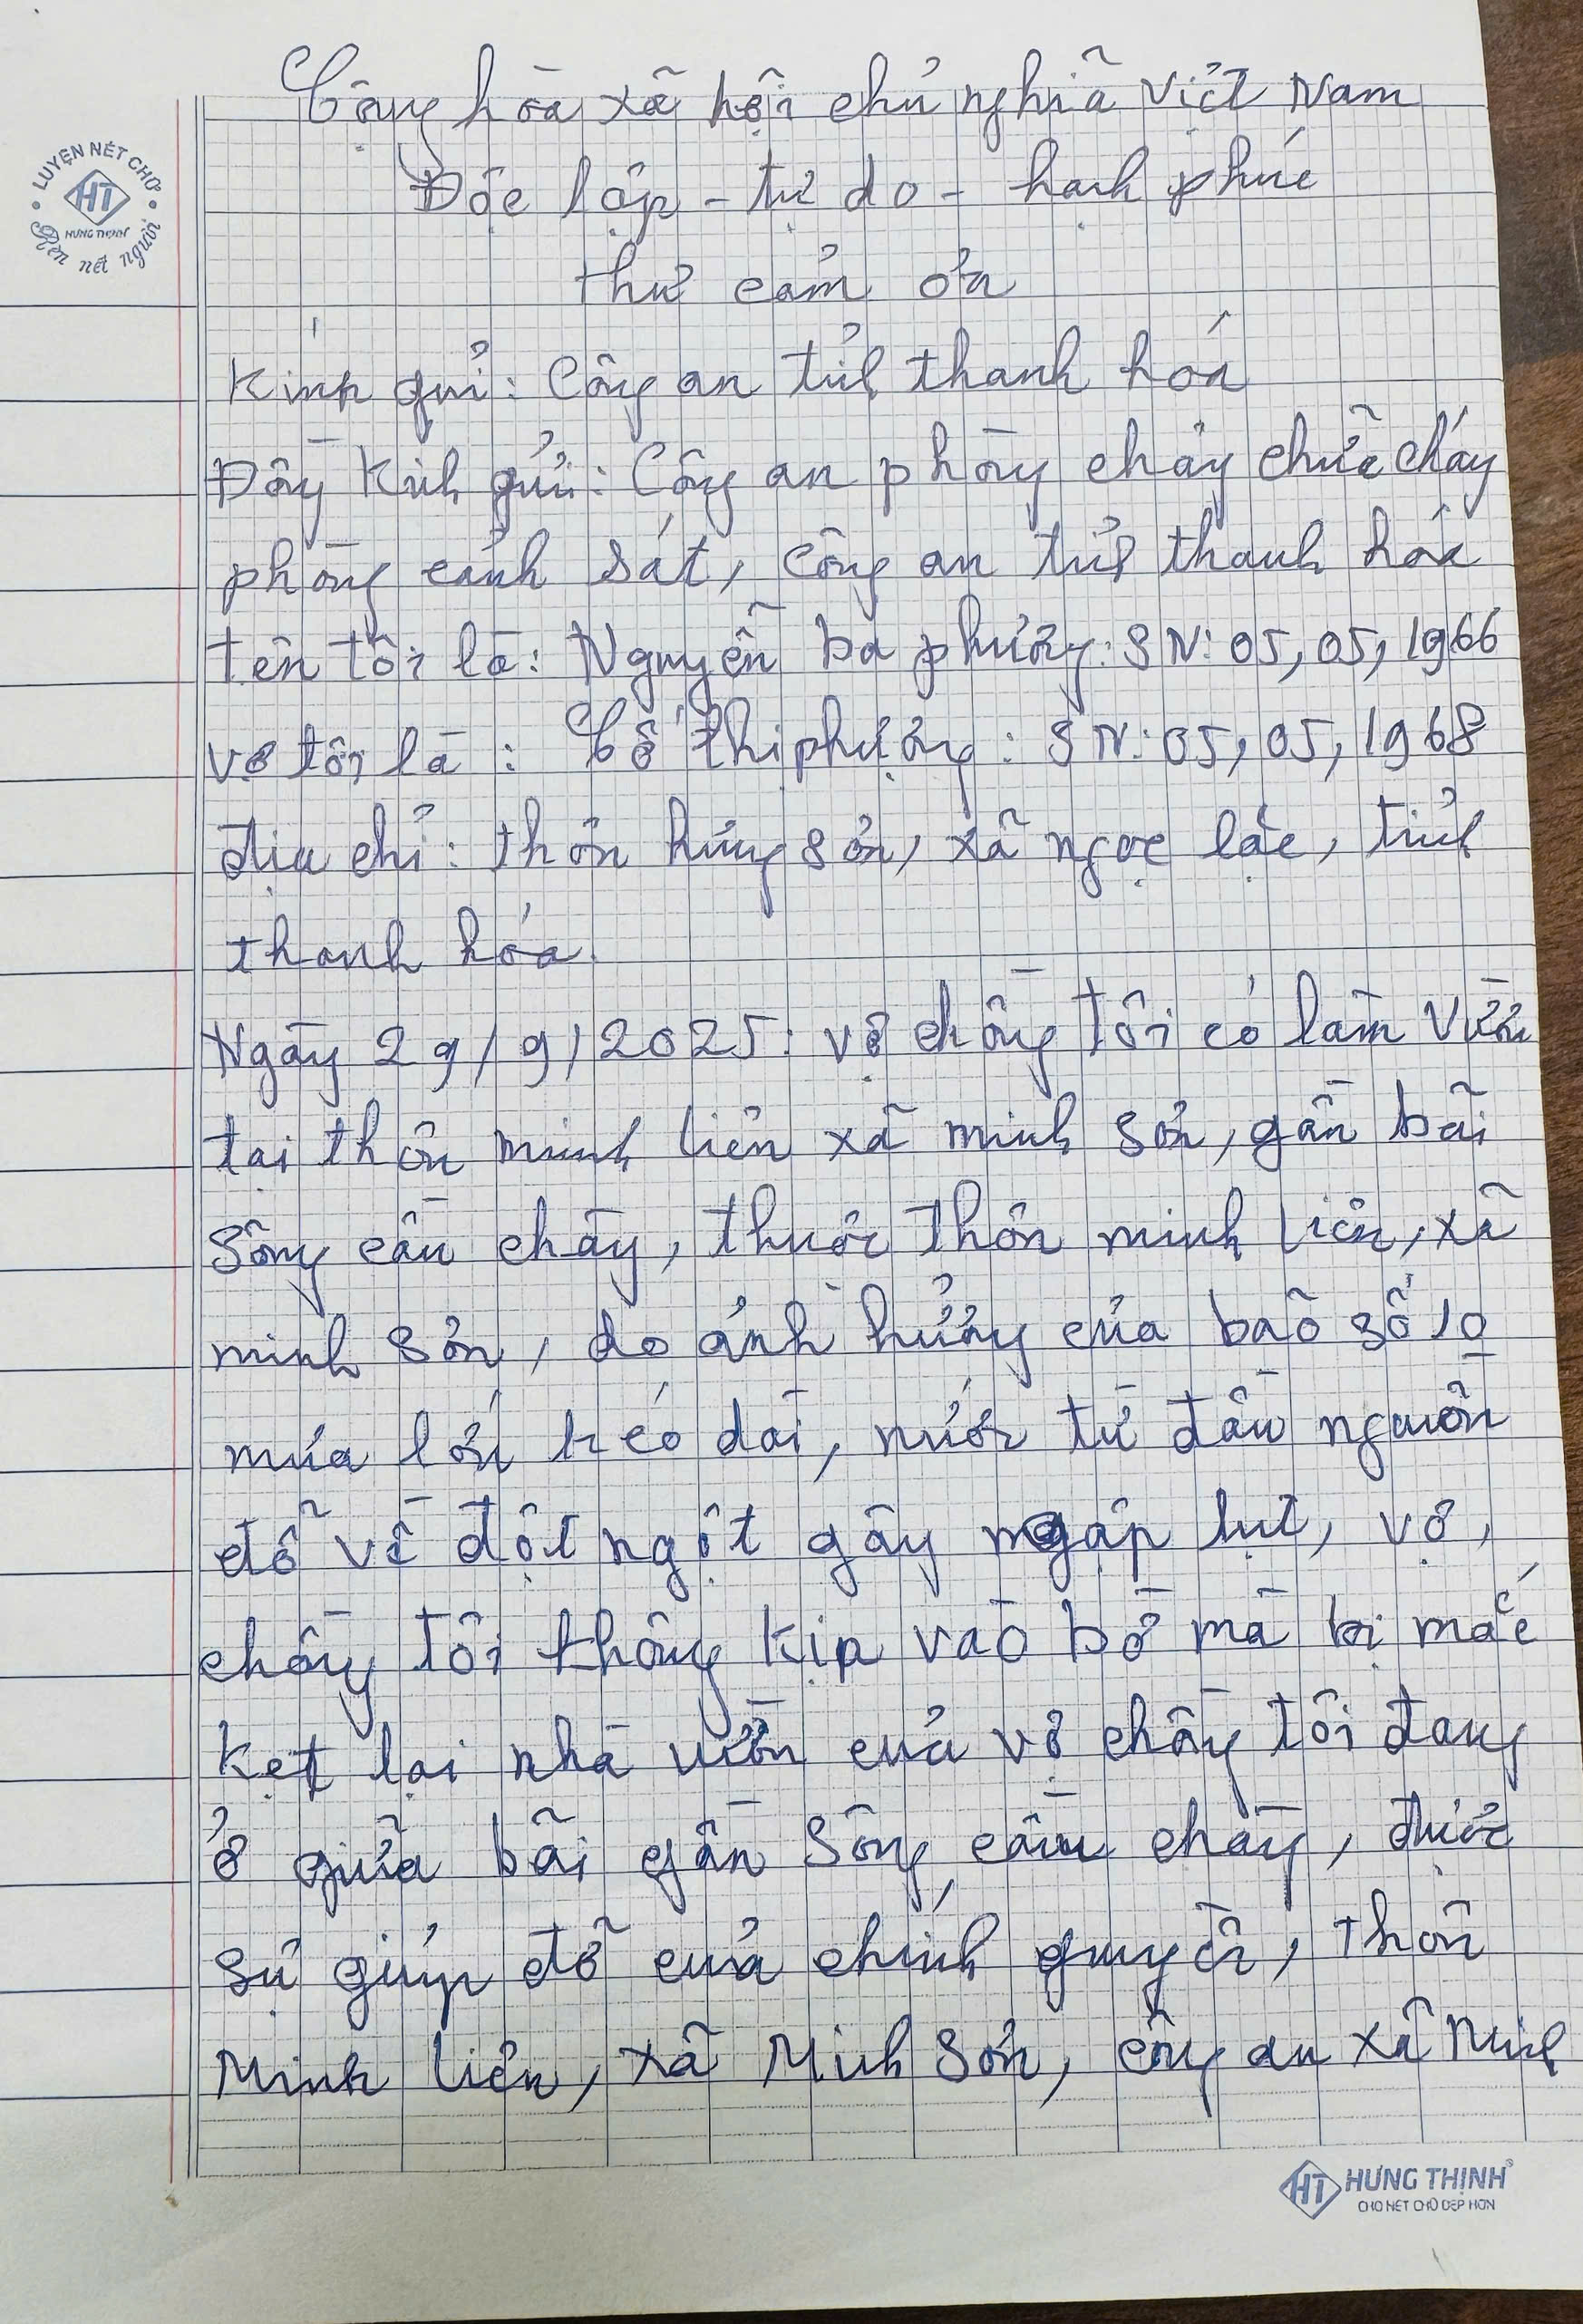 LUYỆN NÉT CHỮ
HT
HƯNG THỊNH
Rèn nết người
Công hòa xã hội chủ nghĩa Việt Nam
Độc lập - tự do - hạnh phúc
thư cảm ơn
Kính gửi: Công an tỉnh thanh hoá
Đồng Kính gửi: Công an phòng cháy chữa cháy
phòng cảnh sát, công an tỉnh thanh hoá
tên tôi là: Nguyễn bá phương: SN: 05, 05, 1966
vợ tôi là: Cố thị phượng: SN: 05, 05, 1968
địa chỉ: thôn hưng sơn, xã ngọc lặc, tỉnh
thanh hóa.
Ngày 29/9/2025: vợ chồng tôi có làm vườn
tại thôn minh liên xã minh sơn, gần bãi
sông cầu chày, thuộc thôn minh liên, xã
minh sơn, do ảnh hưởng của bão số 10
mưa lớn kéo dài, nước từ đầu nguồn
đổ về đột ngột gây ngập lụt, vợ,
chồng tôi không kịp vào bờ mà bị mắc
kẹt lại nhà vườn của vợ chồng tôi đang
ở giữa bãi gần sông cầu chày, được
sự giúp đỡ của chính quyền, thôn
Minh liên, xã Minh Sơn, công an xã Minh
HT HƯNG THỊNH
CHO NÉT CHỮ ĐẸP HƠN